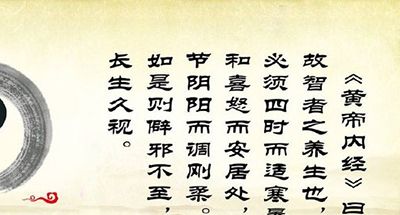 《黄帝内经》曰
故智者之养生也，
必须四时而适寒暑
和喜怒而安居处，
节阴阳而调刚柔。
如是则僻邪不至，
长生久视。